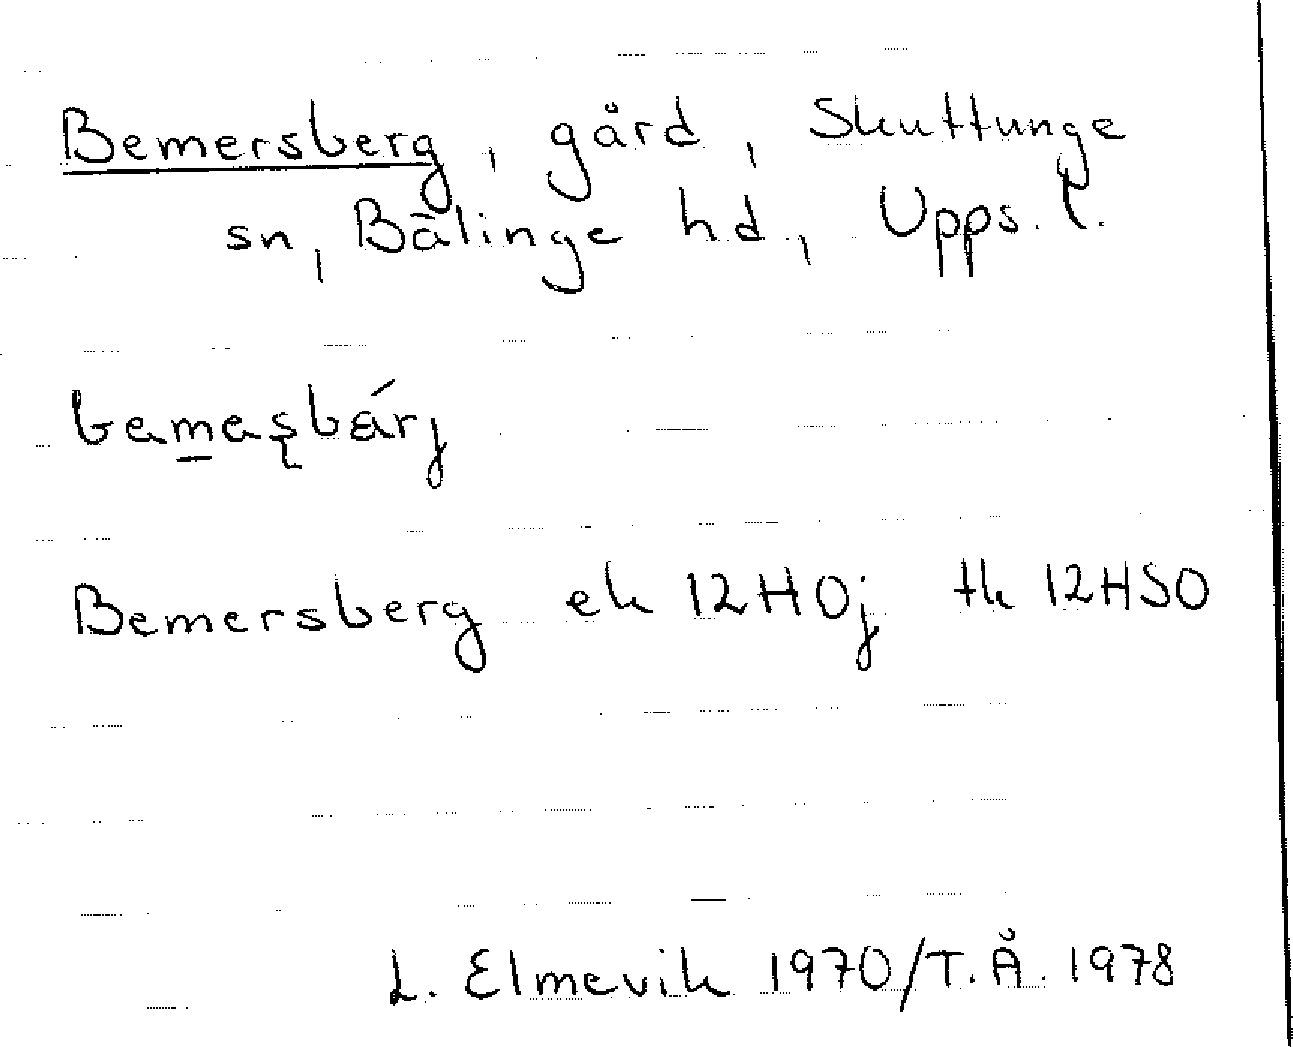 Bemersberg, gård, Skuttunge
sn, Bälinge hd., Upps. l.
Bemersberg ek 12H0j tk 12HSO
L. Elmevik 1970/T.Å. 1978